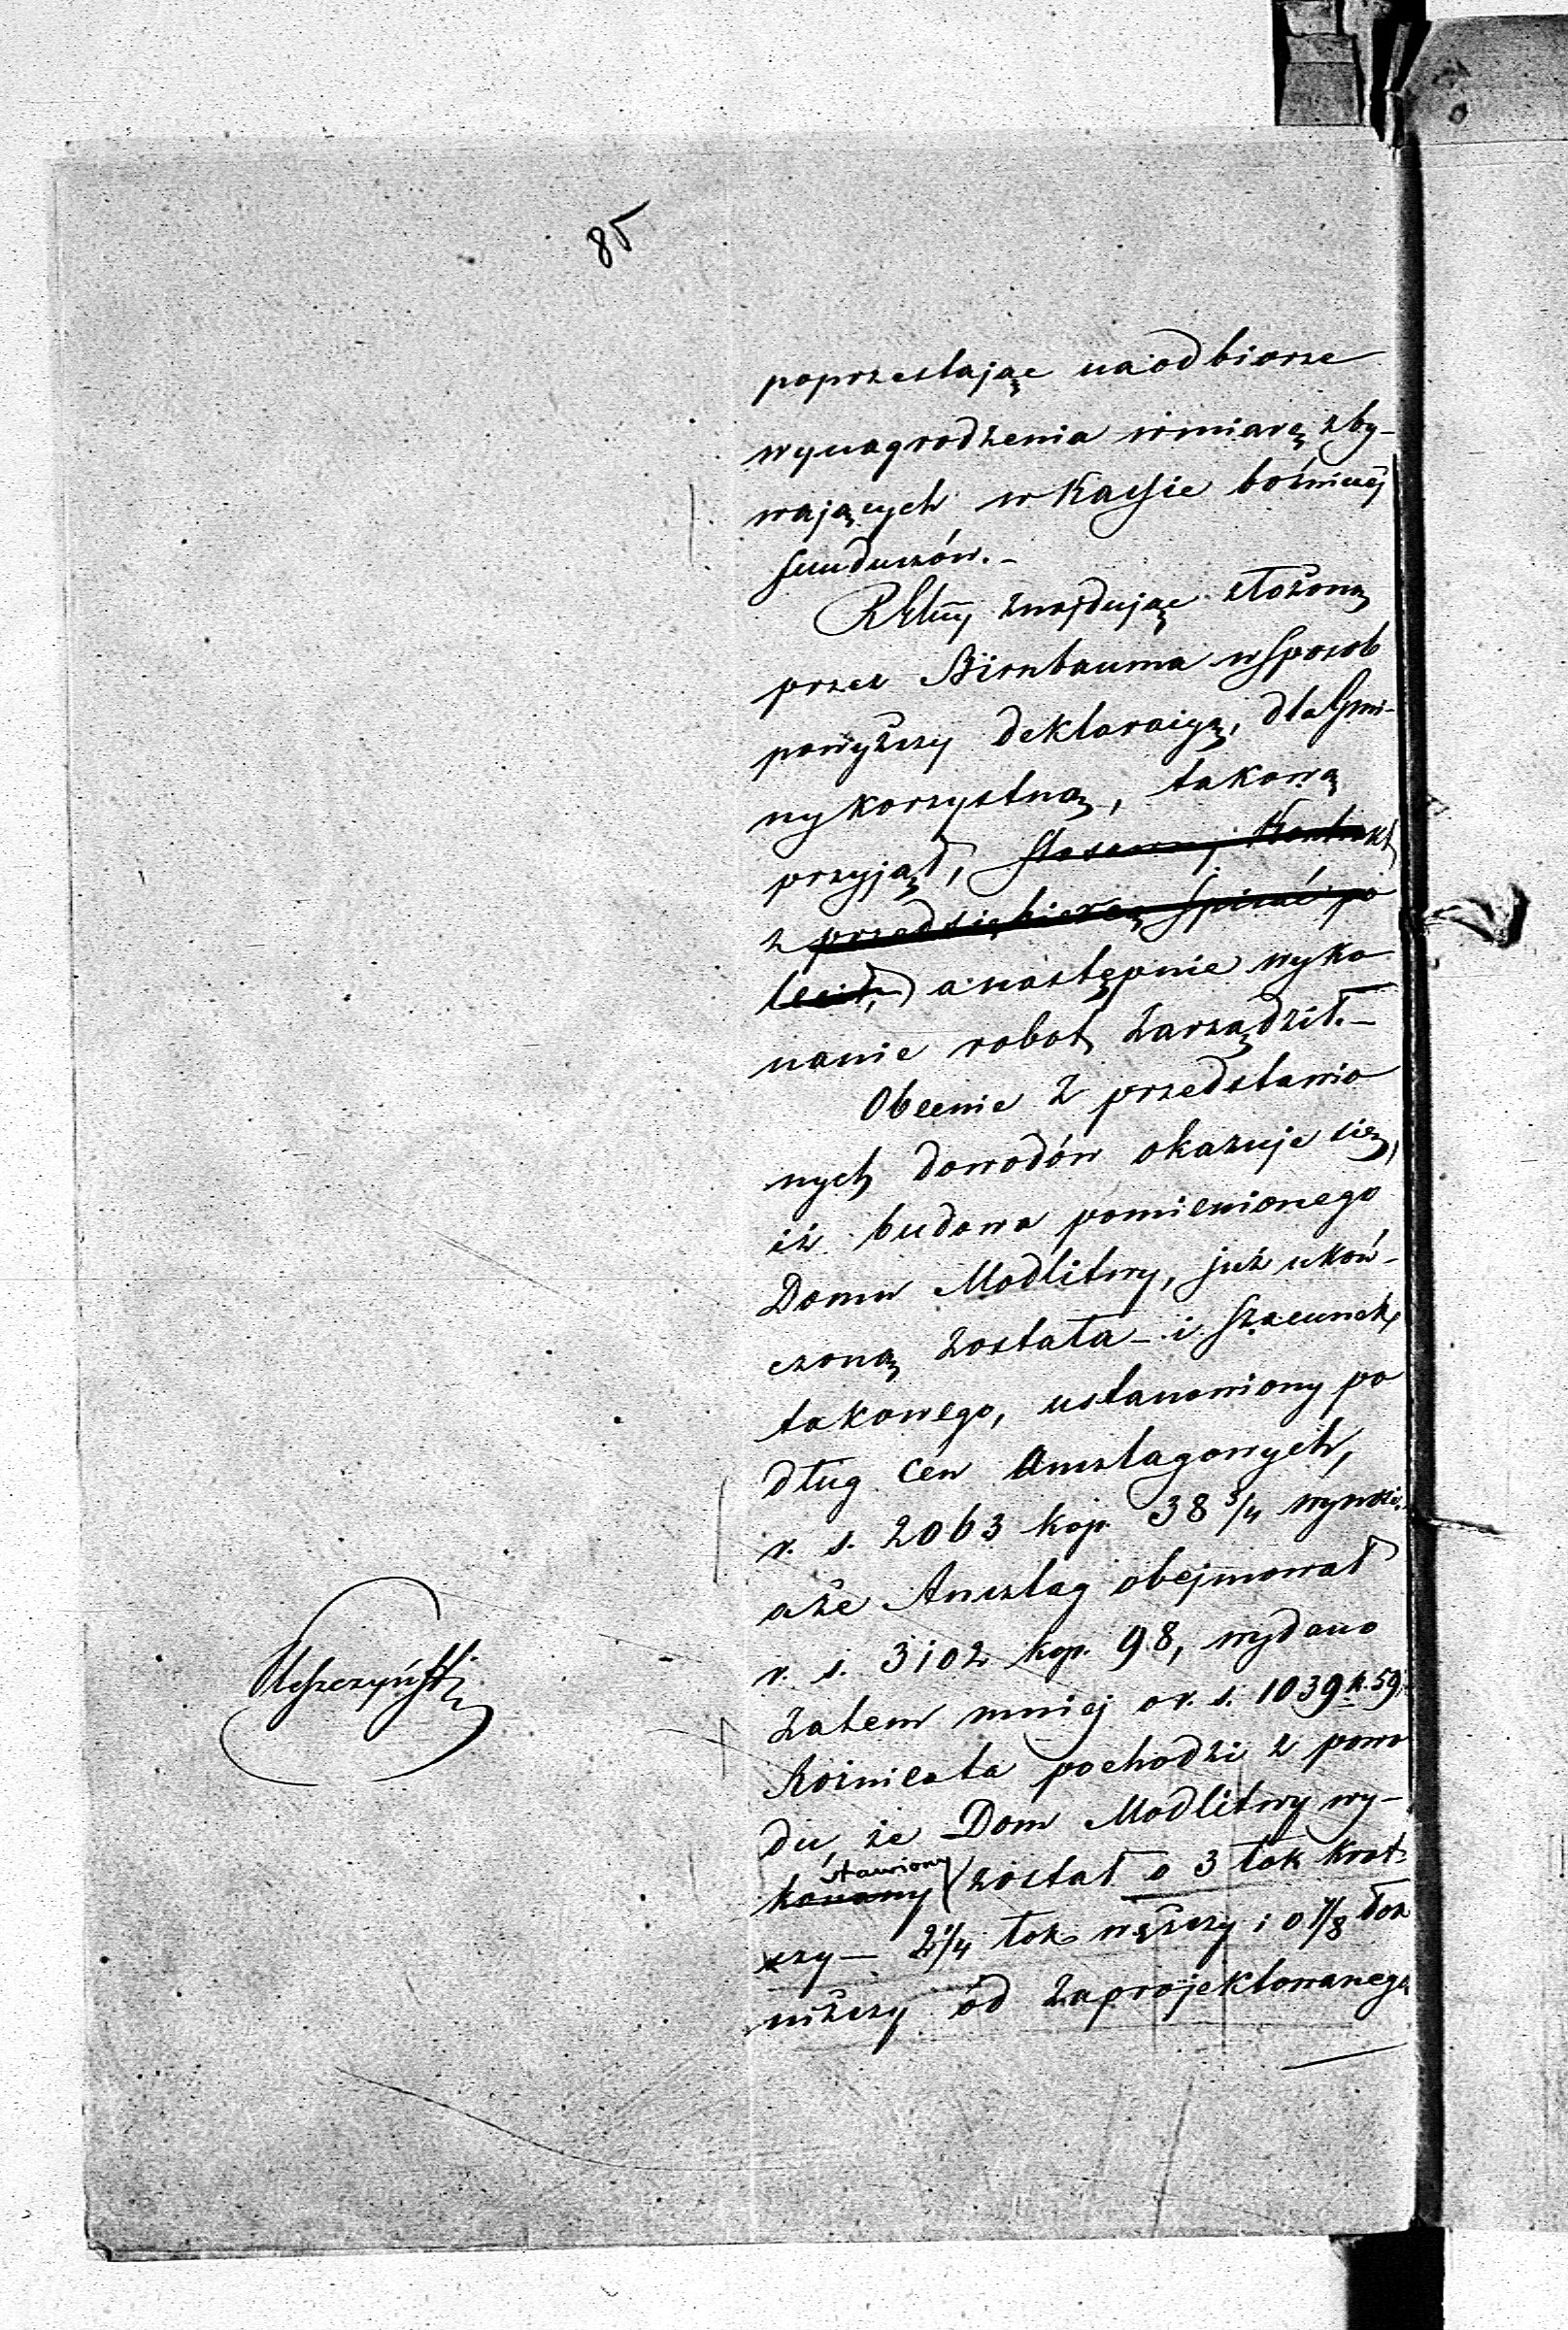 85
poprzestając na odbiorze
wynagrodzenia w miarę zby-
wających w Kassie bożniczej
funduszów. -
znajdując złożoną
przez Birnbauma w sposob
powyższy deklaracyą, dla Gmi-
ny korzystną, takową
przyjął, stosowny Kontrakt
z przedsiębiercą spisać po
lecił, a następnie wyko
nanie robot zarządził. -
Obecnie z przedstawio
nych dowodów okazuje się,
iż budowa pomienionego
Domu Modlitwy, już ukoń-
czoną została - i szacunek
takowego, ustanowiony po
dług cen Anszlagowych,
r. s. 2063 kop. 38 3/4 wynosi,
a że Anszlag obejmował
r. s. 3102 kop. 98, wydano
zatem mniej o r. s. 1039 k. 59
Różnica ta pochodzi z powo
du, że Dom Modlitwy wy-
stawiony
konany został o 3 łok krot
szy - 2 1/4 łok węższy i o 1/8 łok
niższy od zaprojektowanego